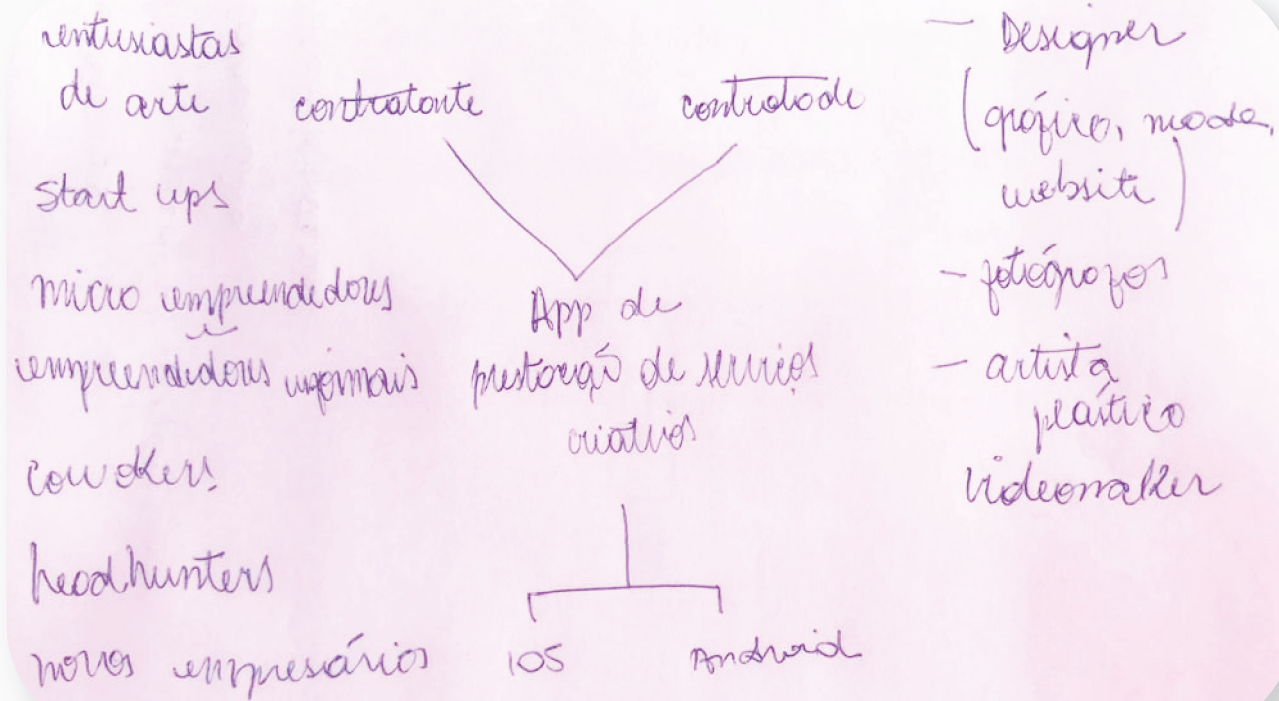 entusiastas
de arte
start ups
micro empreendedores
empreendedores informais
coworkers
headhunters
novos empresários
contratante
contratado
App de
prestação de serviços
criativos
IOS
Android
— Designer
(gráfico, moda,
website)
- fotógrafos
- artista
plástico
videomaker